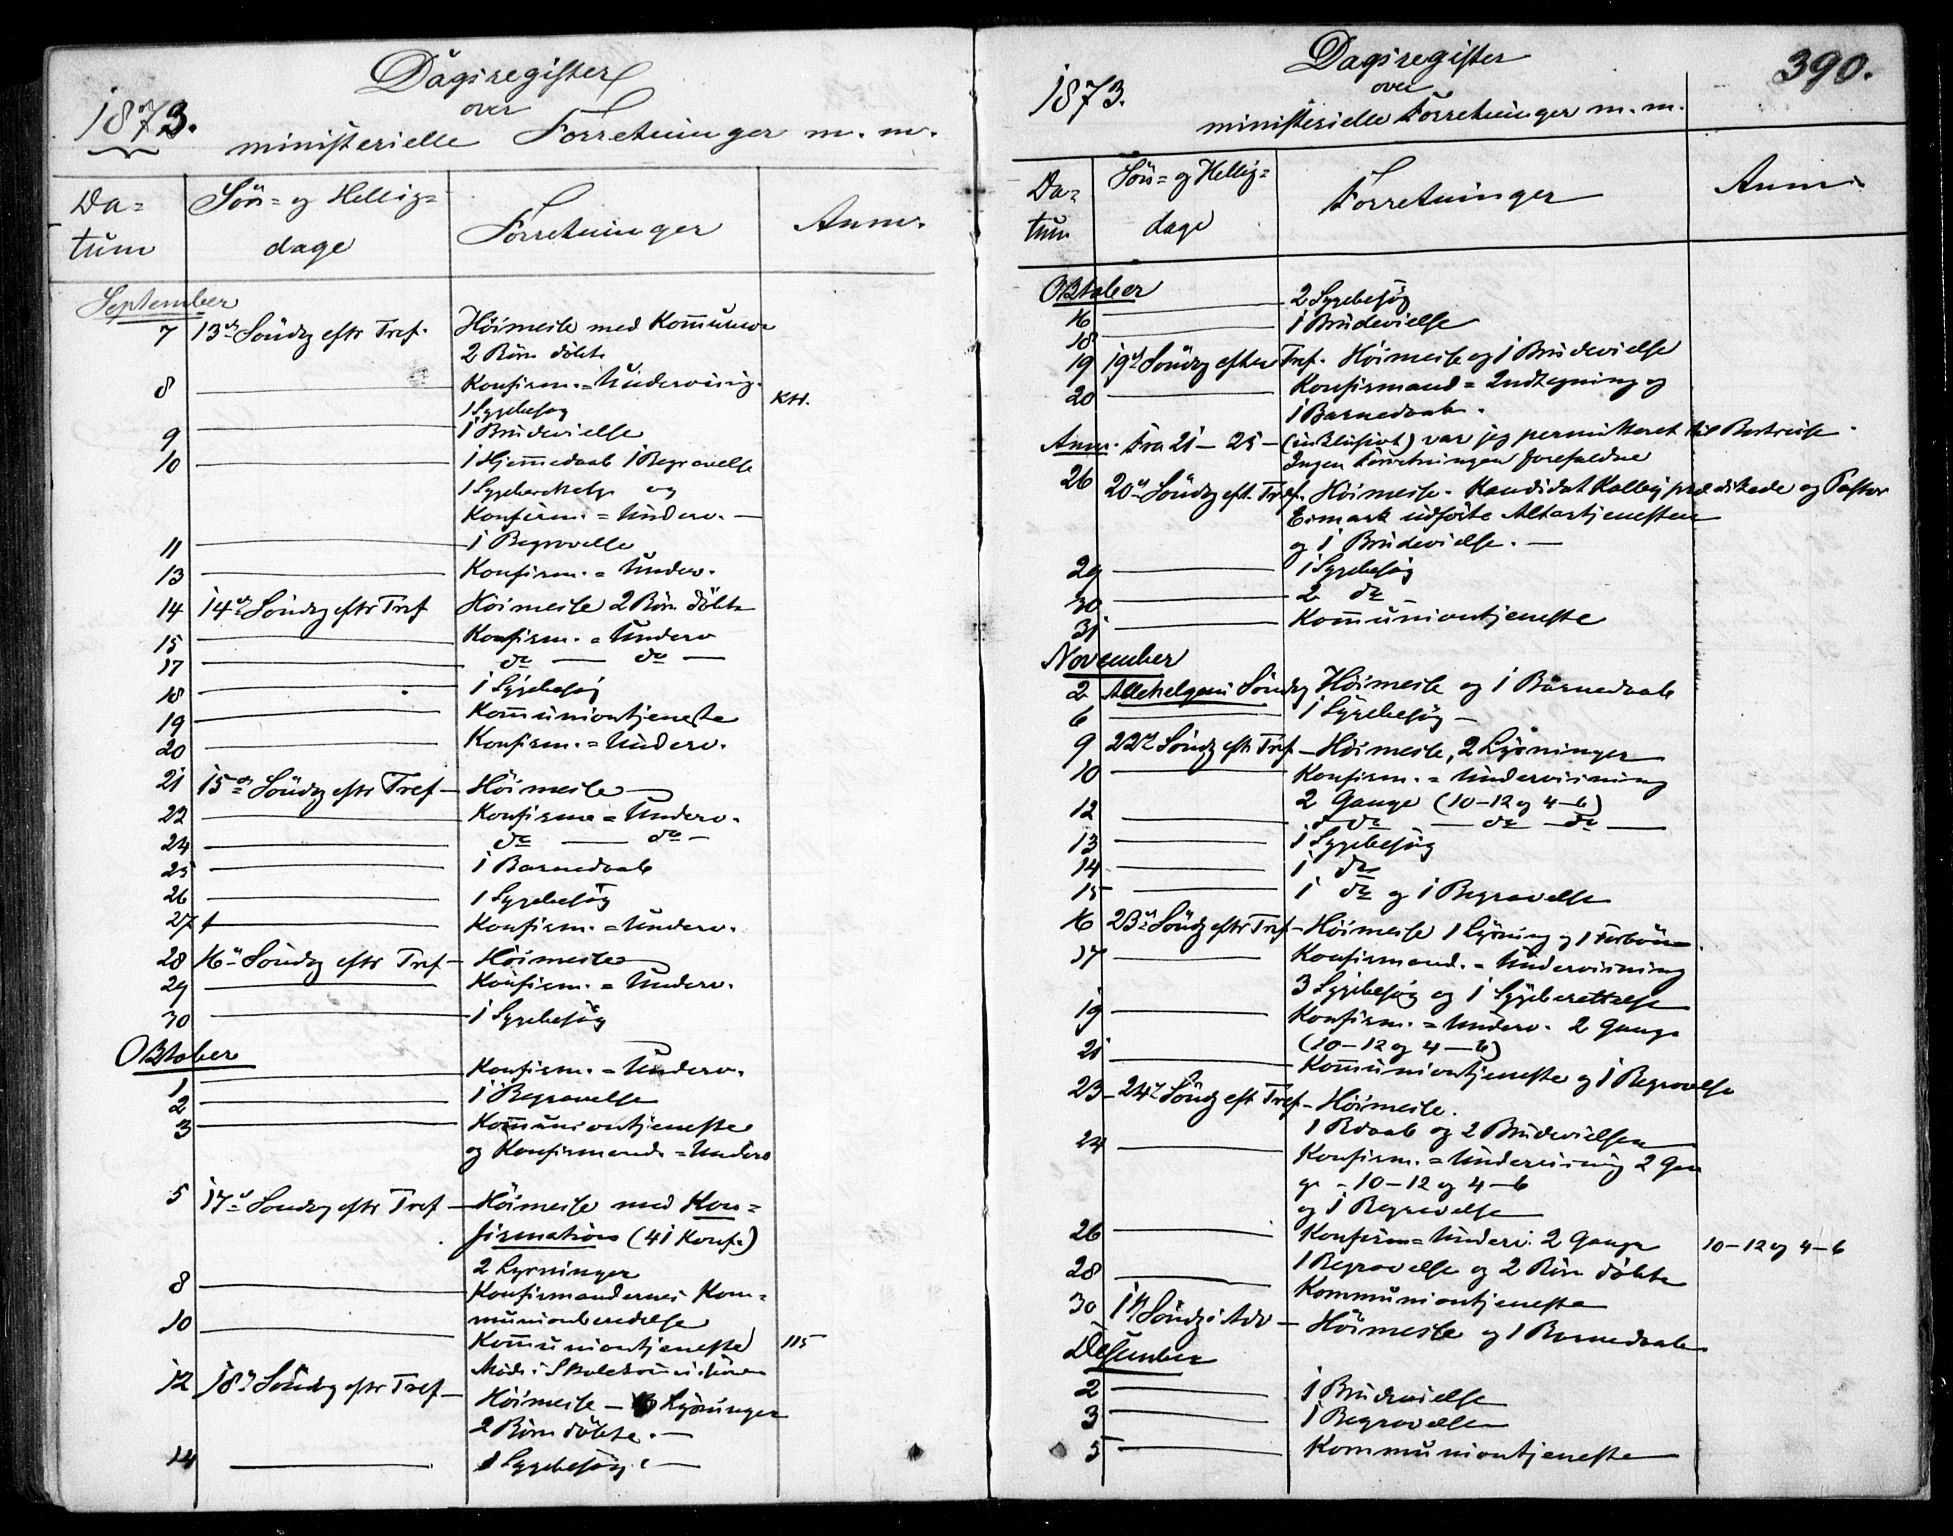 Dagsregister
over
1873.
ministerielle Forretninger m. m.
Da=
tum
Sön= og Hellig=
dage
Forretninger
Anm.
September
7 13de Söndg eftr Tref. Höimesse med Kom̅union
2 Börn döbte
8 Konfirm.=Undervisnig. KH.
1 Sygebesøg
9 1 Brudevielse
10 1 Hjem̅edaab 1 Begravelse
1 Sygeberettelse og
Konfirm.=Underv. —
11 1 Begravelse
13 Konfirm.=Underv.
14 14de Söndg eftr Tref Höimesse 2 Börn döbte
15 Konfirm.=Underv
17 do — do —
18 1 Sygebesög
19 Kom̅uniontjeneste
20 Konfirm.=Underv.
21 15de Söndg eftr Tref — Höimesse
22 Konfirm=Underv.
24 do — do —
25 1 Barnedaab
26 1 Sygebesög
27 Konfirm.=Underv.
28 16de Söndg eftr Tref — Höimesse
29 Konfirm.=Underv.
30 1 Sygebesög
Oktober
1 Konfirm.=Underv.
2 1 Begravelse
3 Kom̅uniontjeneste
og Konfirmand.=Underv
5 17de Söndg eftr Tref — Höimesse med Kon=
firmation (41 Konf.)
2 Lysninger
8 Konfirmandernes Kom=
munionberedelse
10 Kom̅uniontjeneste 115
Möde i Skolekom̅issionen
12 18de Söndg eftr Tref — Höimesse — Lysninger
2 Börn döbte. —
14 1 Sygebesög. —
390.
Dagsregister
over
1873.
ministerielle Forretninger m. m.
Da=
tum
Sön= og Hellig=
dage
Forretninger
Anm.
Oktober
16 2 Sygebesög
18 1 Brudevielse
19 19de Söndg efter Tref. Höimesse og 1 Brudevielse
20 Konfirmand=Indtegning og
1 Barnedaab.
Anm. Fra 21 — 25 — (inklusivt) var jeg permitteret til Bortreise.
Ingen Forretninger forefaldne
26 20de Söndg eft. Tref. Höimesse. Kandidat Kolbej prædikede og Pastor
Ermark udförte Altartjenesten
og 1 Brudevielse. —
29 1 Sygebesög
30 2 do
31 Kom̅uniontjeneste
November
2 Allehelgens Söndag Höimesse og 1 Barnedaab
6 1 Sygebesög —
9 22de Söndg eftr Tref — Höimesse, 2 Lysninger
10 Konfirm.=Undervisning
2 Gange (10–12 og 4–6)
12 do — do — do —
13 1 Sygebesög
14 1 do
15 1 do og 1 Begravelse
16 23de Söndg eftr Tref — Höimesse 1 Lysning og 1 Forbön.
17 Konfirmand.=Undervisning
3 Sygebesög og 1 Sygeberettelse
19 Konfirm.=Underv. 2 Gange
(10–12 og 4–6)
21 Kom̅uniontjeneste og 1 Begravelse
23 — 24de Söndg eft Tref — Höimesse.
1 Bdaab og 2 Brudevielser
24 Konfirm.=Undervisning 2 Gan
ge – 10–12 og 4–6
og 1 Begravelse
26 Konfirm=Underv. 2 Gange 10–12 og 4–6
28 1 Begravelse og 2 Börn döbte
Kommuniontjeneste
30 1ste Söndg i Adv — Höimesse og 1 Barnedaab
Desember
2 1 Brudevielse
3 1 Begravelse
5 Kommuniontjeneste